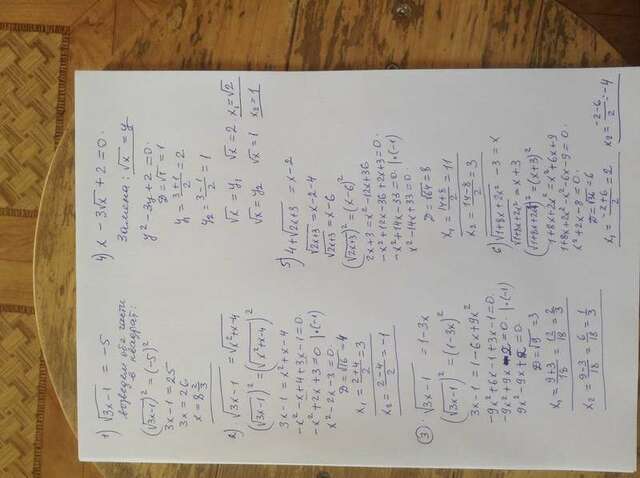 1) √3x-1 = -5
возведем обе части
в квадрат:
(√3x-1)² = (-5)²
3x-1 = 25
3x = 26
x = 8 2/3
2) √3x-1 = √x²+x-4
(√3x-1)² = (√x²+x-4)²
3x-1 = x²+x-4
-x²-x+4+3x-1=0
-x²+2x+3=0 |·(-1)
x²-2x-3=0
D=√16=4
x₁ = 2+4/2 = 3
x₂ = 2-4/2 = -1
3) √3x-1 = 1-3x
(√3x-1)² = (1-3x)²
3x-1 = 1-6x+9x²
-9x²+6x-1+3x-1=0
-9x²+9x-2=0 |·(-1)
9x²-9x+2=0
D=√9=3
x₁ = 9+3/18 = 12/18 = 2/3
x₂ = 9-3/18 = 6/18 = 1/3
4) x-3√x+2=0.
Замена: √x=y
y²-3y+2=0.
D=√1=1
y₁ = 3+1/2 = 2
y₂ = 3-1/2 = 1
√x=y₁ √x=2 x₁=√2
√x=y₂ √x=1 x₂=1
5) 4+√2x+3 = x-2
√2x+3 = x-2-4
√2x+3 = x-6
(√2x+3)² = (x-6)²
2x+3 = x²-12x+36
-x²+12x-36+2x+3=0.
-x²+14x-33=0 |·(-1)
x²-14x+33=0
D=√64=8
x₁ = 14+8/2 = 11
x₂ = 14-8/2 = 3
6) √1+8x+2x² - 3 = x
√1+8x+2x² = x+3
(√1+8x+2x²)² = (x+3)²
1+8x+2x² = x²+6x+9
1+8x+2x²-x²-6x-9=0.
x²+2x-8=0.
D=√36=6
x₁ = -2+6/2 = 2 x₂ = -2-6/2 = -4